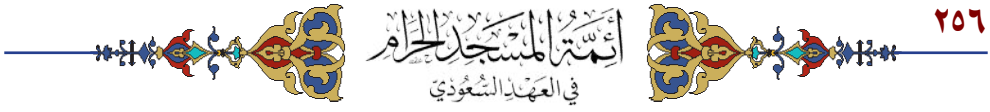 ٢٥٦
أئمة المسجد الحرام
في العهد السعودي